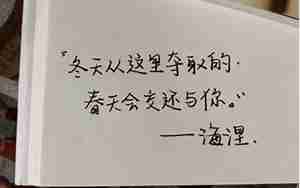 “冬天从这里夺取的.
春天会交还与你。”
——海涅.